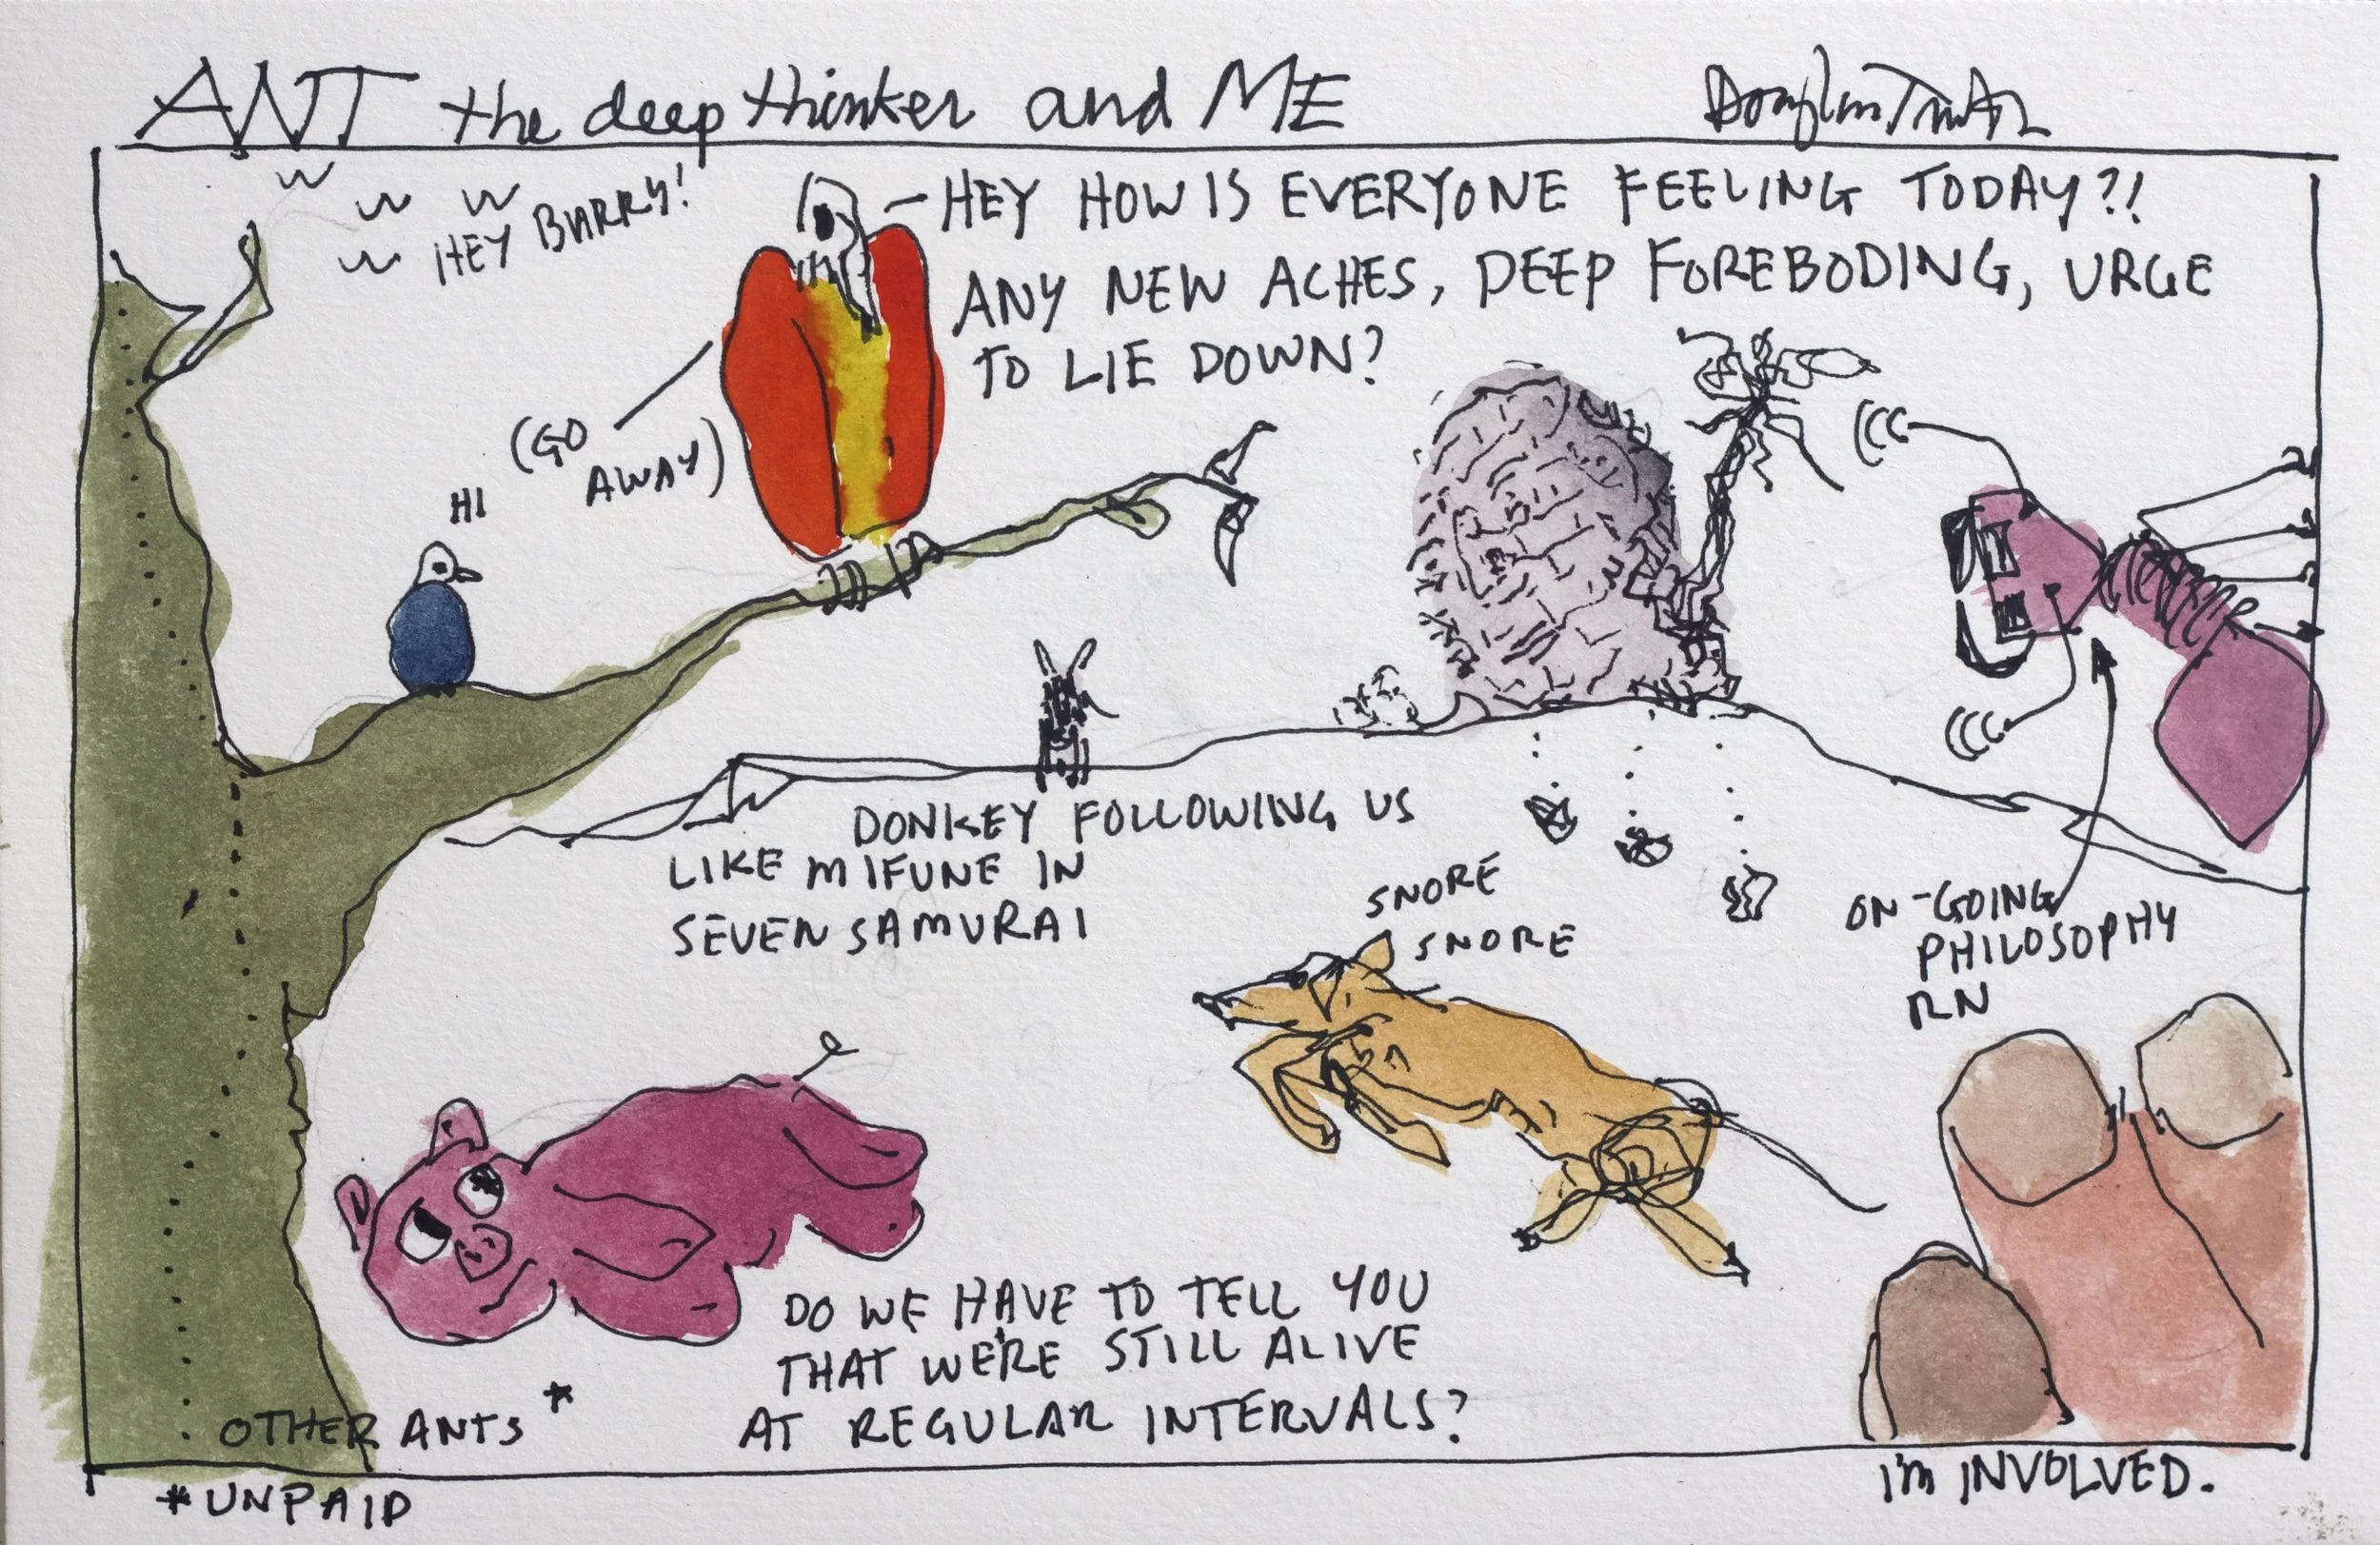 ANT the deep thinker and ME
HEY BARRY!
- HEY HOW IS EVERYONE FEELING TODAY?!
ANY NEW ACHES, DEEP FOREBODING, URGE
TO LIE DOWN?
(GO
AWAY)
HI
DONKEY FOLLOWING US
LIKE MIFUNE IN
SEVEN SAMURAI
SNORE
SNORE
ON-GOING
PHILOSOPHY
RN
DO WE HAVE TO TELL YOU
THAT WE'RE STILL ALIVE
AT REGULAR INTERVALS?
OTHER ANTS *
* UNPAID
I'm INVOLVED.